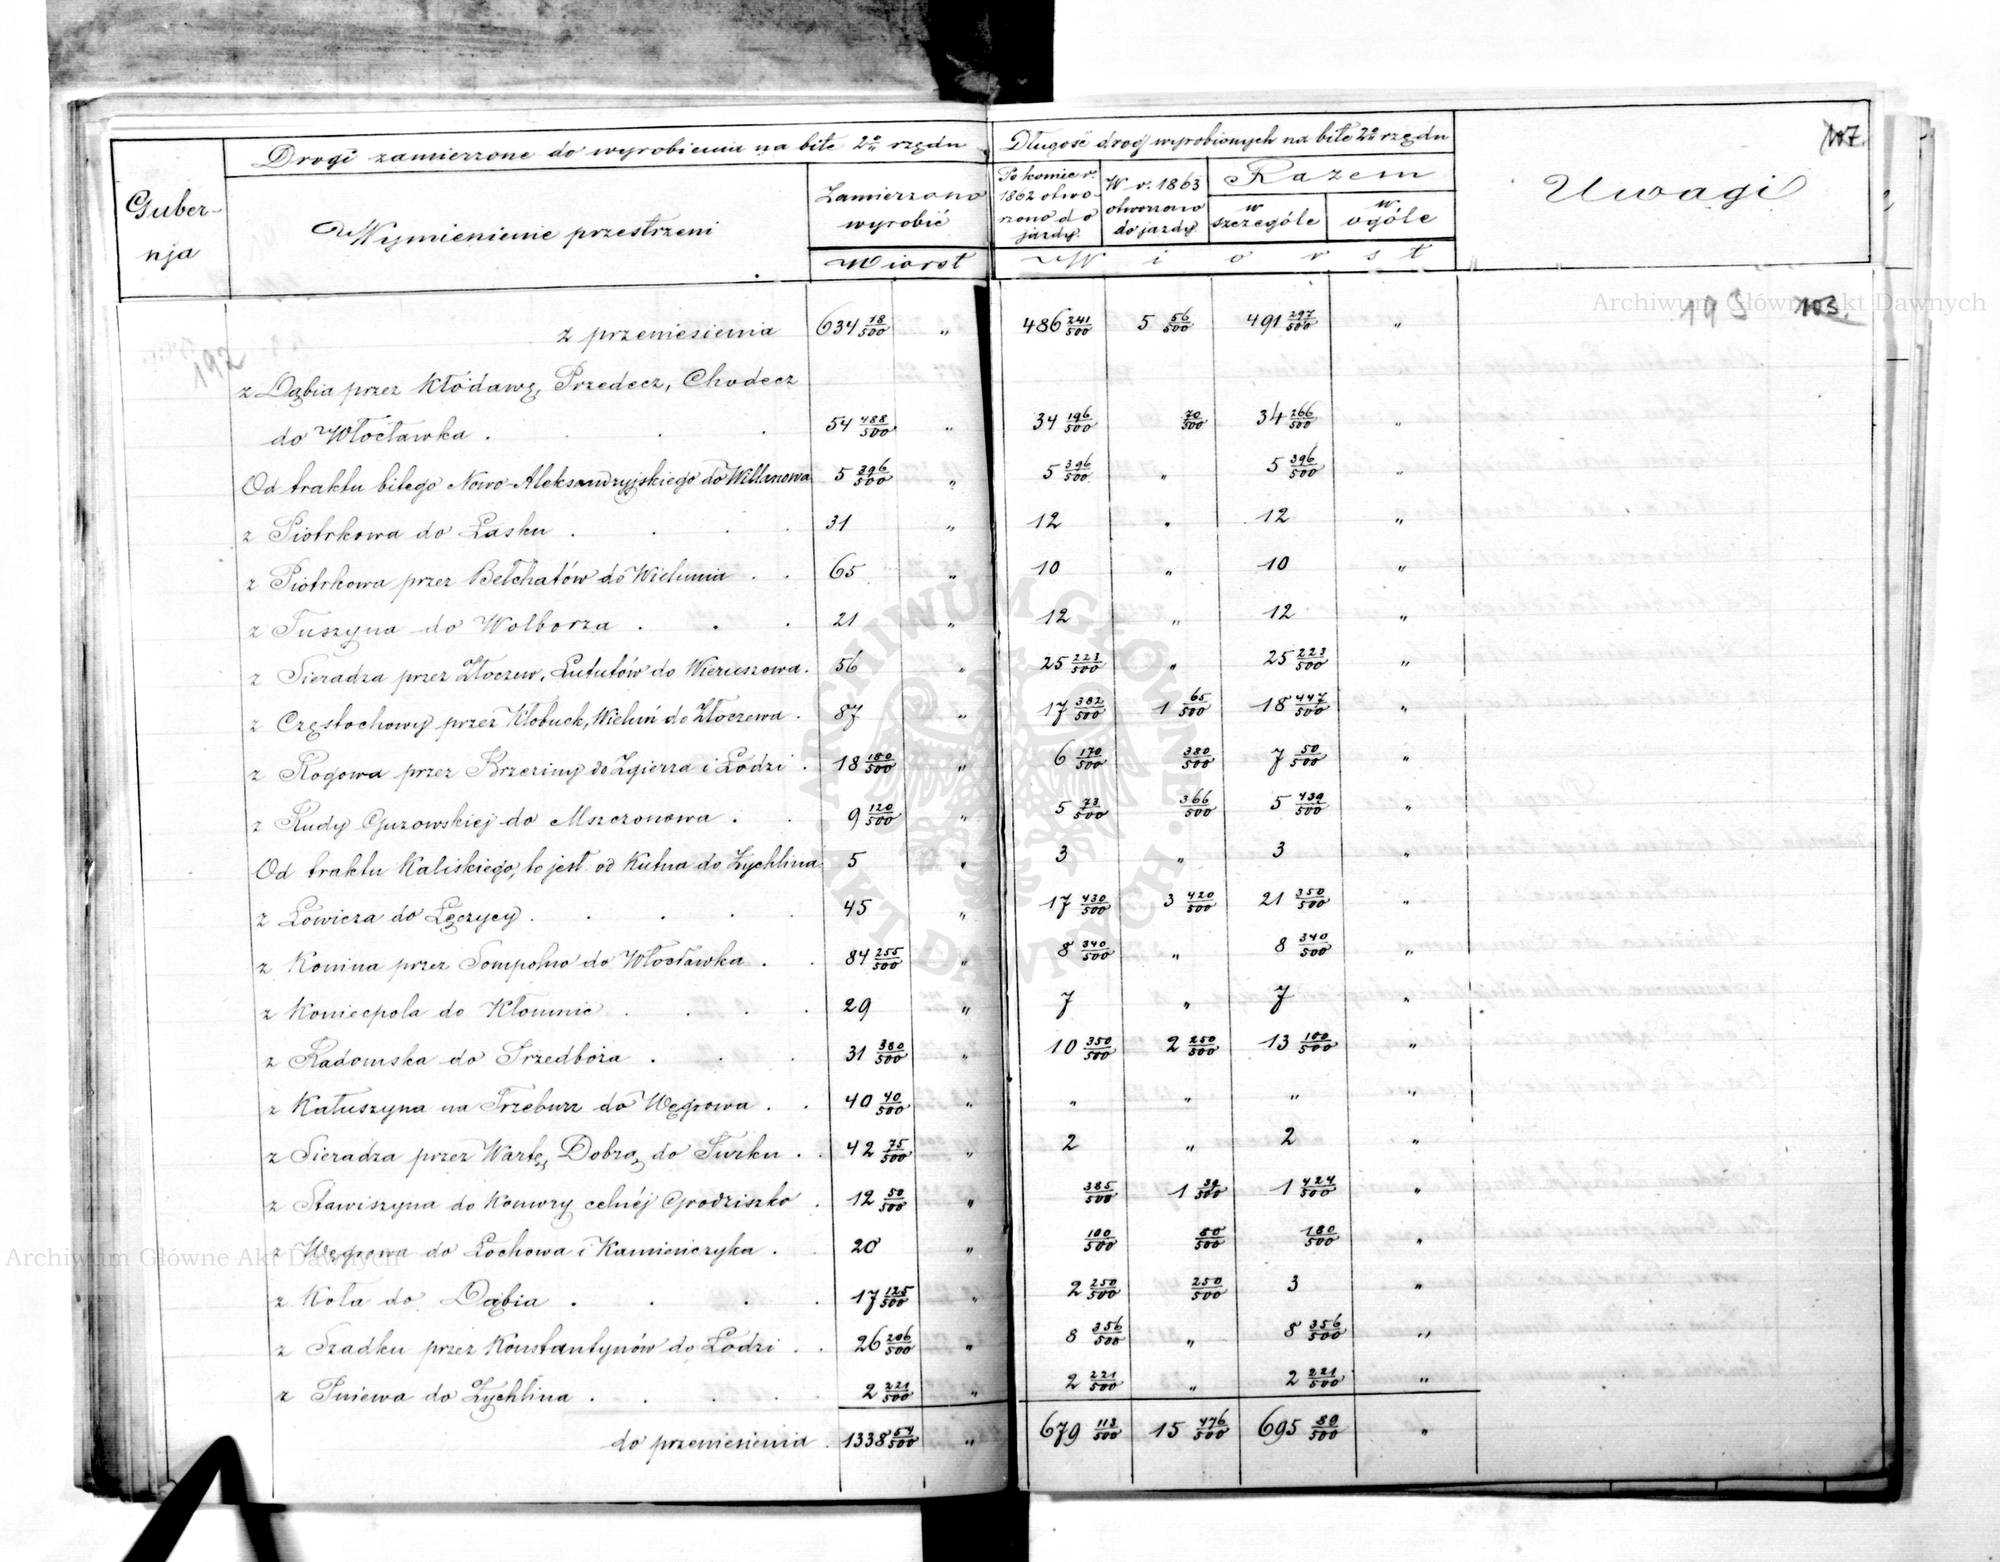 107.
Drogi zamierzone do wyrobienia na bite 2o rzędu
Długość dróg wyrobionych na bite 2o rzędu
Guber-
nja
Wymienienie przestrzeni
Zamierzono
wyrobić
Wiorst
Po koniec r.
1862 otwo-
rzono do
jazdy.
W r. 1863
otworzono
do jazdy
Razem
w
szczególe
w
ogóle
W i o r s t
Uwagi
192
193 103.
z przeniesienia 634 78/500 " 486 241/500 5 56/500 491 297/500 "
z Dąbia przez Kłodawę, Przedecz, Chodecz
do Włocławka . . . 54 488/500 " 34 196/500 70/500 34 266/500 "
Od traktu bitego Nowo-Aleksandryjskiego do Willanowa 5 396/500 " 5 396/500 " 5 396/500 "
z Piotrkowa do Łasku . . . 31 " 12 " 12 "
z Piotrkowa przez Bełchatów do Wielunia . . 65 " 10 " 10 "
z Tuszyna do Wolborza . . . 21 " 12 " 12 "
z Sieradza przez Złoczew, Lututów do Wieruszowa . 56 " 25 223/500 " 25 223/500 "
z Częstochowy przez Kłobuck, Wieluń do Złoczewa . 87 " 17 382/500 1 65/500 18 447/500 "
z Rogowa przez Brzeziny do Zgierza i Łodzi . 18 180/500 " 6 170/500 380/500 7 50/500 "
z Rudy Guzowskiej do Mszczonowa . . 9 120/500 " 5 73/500 366/500 5 439/500 "
Od traktu Kaliskiego, to jest od Kutna do Żychlina 5 " 3 " 3 "
z Łowicza do Łęczycy . . . . 45 " 17 430/500 3 420/500 21 350/500 "
z Konina przez Sompolno do Włocławka . . 84 255/500 " 8 340/500 " 8 340/500 "
z Koniecpola do Kłomnic . . . . 29 " 7 " 7 "
z Radomska do Przedborza . . . 31 380/500 " 10 350/500 2 250/500 13 100/500 "
z Kałuszyna na Trzebucz do Węgrowa . . 40 40/500 " " " " "
z Sieradza przez Wartę, Dobrą do Turku . . 42 75/500 " 2 " 2 "
z Stawiszyna do Komory celnéj Grodziszko . 12 50/500 " 385/500 1 39/500 1 424/500 "
z Węgrowa do Łochowa i Kamieńczyka . . 20 " 100/500 80/500 180/500 "
z Koła do Dąbia . . . . 17 125/500 " 2 250/500 250/500 3 "
z Szadku przez Konstantynów do Łodzi . . 26 206/500 " 8 356/500 " 8 356/500 "
z Pniewa do Żychlina . . . . 2 221/500 " 2 221/500 " 2 221/500 "
do przeniesienia . 1338 54/500 " 679 113/500 15 476/500 695 89/500 "
Archiwum Główne Akt Dawnych
Archiwum Główne Akt Dawnych
ARCHIWUM GŁÓWNE AKT DAWNYCH